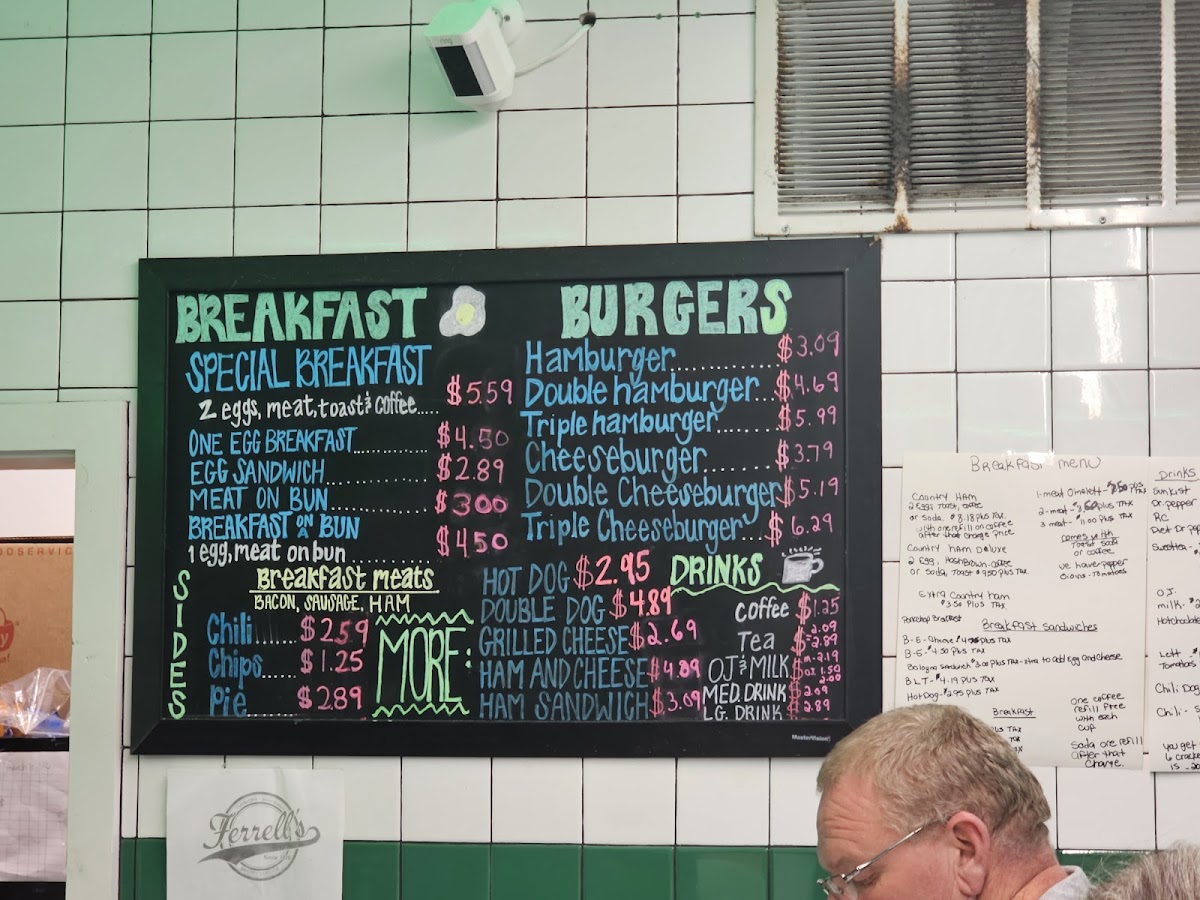 ring
BREAKFAST
SPECIAL BREAKFAST
2 eggs, meat, toast & coffee..... $5.59
ONE EGG BREAKFAST............ $4.50
EGG SANDWICH................ $2.89
MEAT ON BUN $3.00
BREAKFAST ON A BUN
1 egg, meat on bun $4.50
Breakfast meats
BACON, SAUSAGE, HAM
SIDES
Chili...... $2.59
Chips..... $1.25
Pie.......... $2.89
BURGERS
Hamburger............... $3.09
Double hamburger... $4.69
Triple hamburger....... $5.99
Cheeseburger....... $3.79
Double Cheeseburger $5.19
Triple Cheeseburger..... $6.29
MORE:
HOT DOG $2.95
DOUBLE DOG $4.89
GRILLED CHEESE $2.69
HAM AND CHEESE $4.89
HAM SANDWICH $3.69
DRINKS
coffee $1.25
Tea 2.09
2.89
OJ & MILK m-2.19
OJ 1.50
2.00
MED. DRINK 2.09
LG. DRINK 2.89
MasterVision
Ferrell's
Breakfast menu
Country Ham
2 Eggs, Toast, coffee
or Soda. $8.18 Plus TAX
with one refill on coffee
after that charge price
Country ham Deluxe
2 Egg, Hashbrown-coffee
or Soda, Toast $9.50 Plus TAX
Extra Country ham
$3.50 Plus TAX
1-meat Omelett-
2-meat-
3 meat- 11.00 Plus TAX
comes with
Toast Soda
or coffee
we have pepper
Onions-Tomatoes
Breakfast Sandwiches
B-E-
B-E. $4.50 Plus TAX
Bologna Sandwich $3.00 Plus TAX-extra to add Egg and cheese
BLT- $4.19 Plus TAX
Hot Dog- $2.95 Plus TAX
Breakfast
one coffee
refill Free
with each
cup
Soda one refill
after that
Charge.
Drinks
Sunkist
Dr. Pepper
RC
Diet Dr. Pe
Sweettea-
O.J.
milk-
Hotchocolate
Lett
Tomatoes
Chili Dog
Chili-
you get
6 cracke